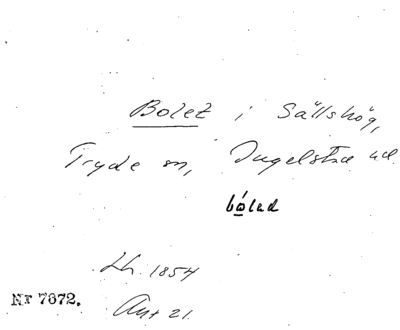 Bolet i Sällshög,
Tryde sn, Ingelstad hd.
bölad
Lh. 1854
Nr 7672.
Ant 21.